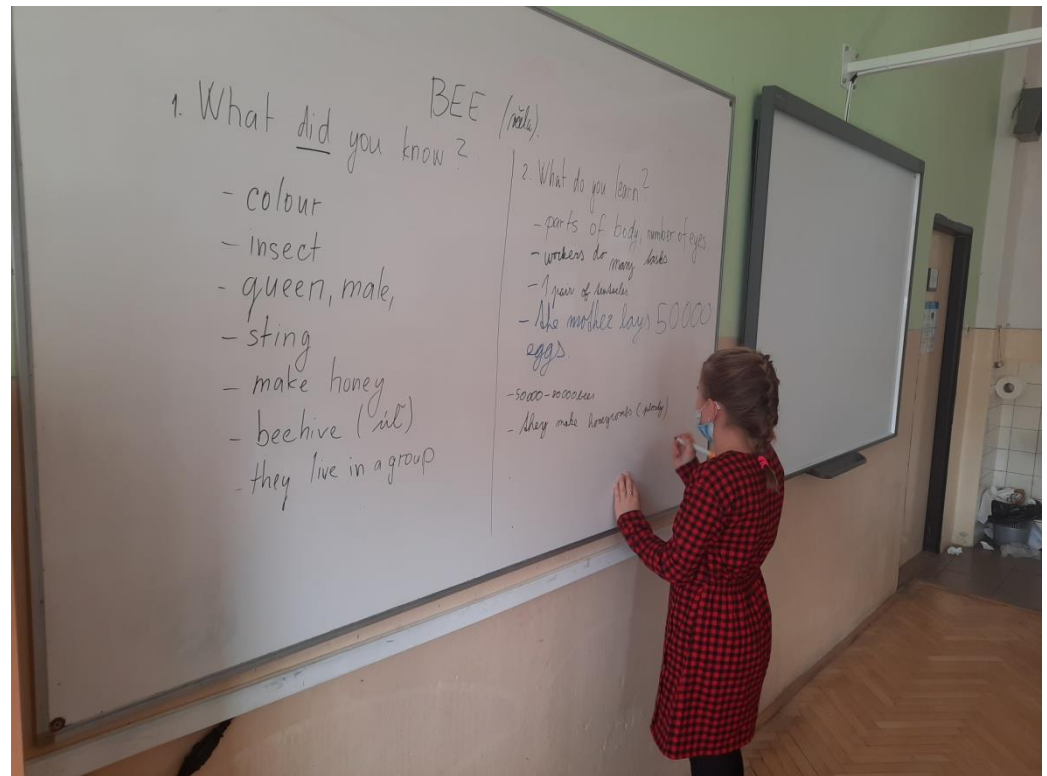 BEE (včela).
1. What did you know?
- colour
- insect
- queen, male,
- sting
- make honey
- beehive (úľ)
- they live in a group
2. What do you learn?
- parts of body, number of eyes.
- workers do many tasks
- 1 pair of tentacles
- the mother lays 50000
eggs.
- 50000-80000 bees
- they make honeycombs (plásty)